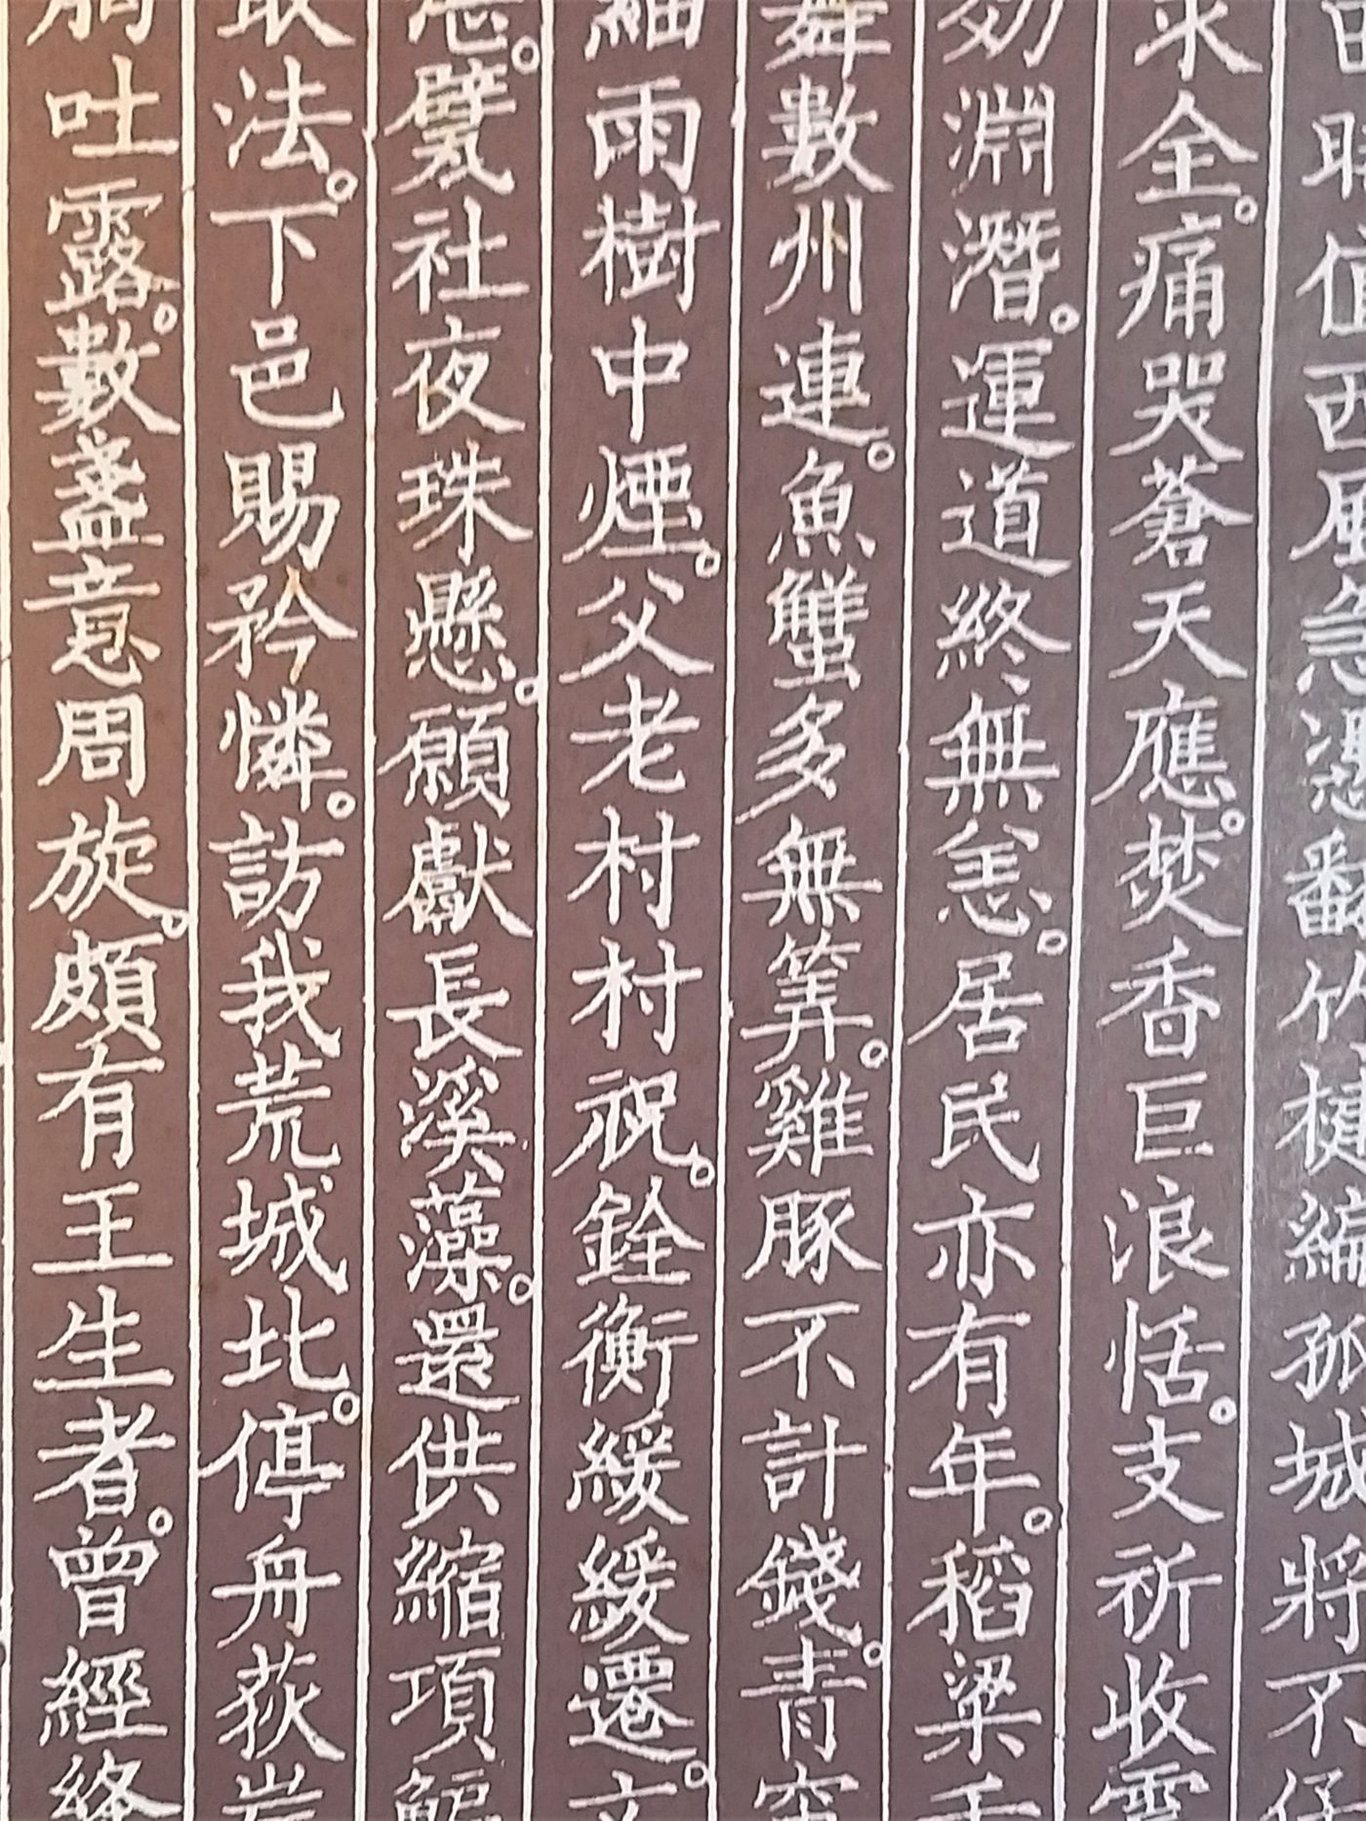 時值西風急憑翻竹楗編孤城將不
求全。痛哭蒼天應。焚香巨浪恬。支祈收雲
淵潛。運道終無恙。居民亦有年。稻粱千
舞數州連。魚蟹多無筭。雞豚不計錢。青
細雨樹中煙。父老村村祝。銓衡緩緩遷。
社夜珠懸。願獻長溪藻。還供縮項鯿
取法。下邑賜矜憐。訪我荒城北。停舟荻岸
胸吐露。數盞意周旋。頗有王生者。曾經絳